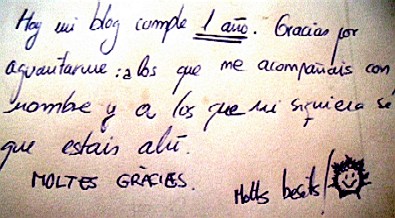 Hoy mi blog cumple 1 año. Gracias por
aguantarme: a los que me acompañais con
nombre y a los que ni siquiera sé
que estais ahí.
MOLTES GRÀCIES.
Molts besits